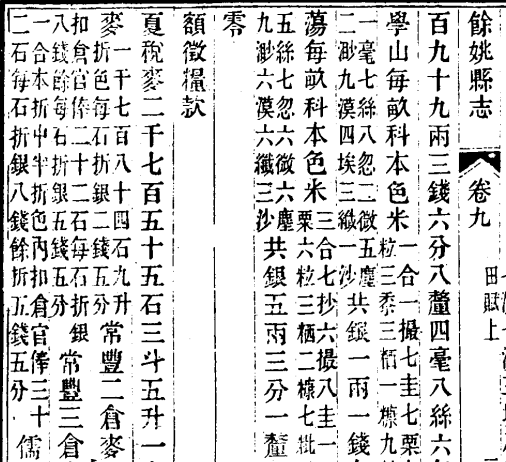 餘姚縣志 卷九 田賦上
百九十九兩三錢六分八釐四毫八絲六
學山每畝科本色米一合一撮七圭七粟
粒三黍三粞一糠九
一毫七絲八忽二微五塵
二渺九漠四埃三纖一沙
共銀一兩一錢
蕩每畝科本色米三合七抄六撮八圭一
粟六粒三粞二糠七粃
五絲七忽六微六塵
九渺六漠六纖三沙
共銀五兩三分一釐
零
額徵糧款
夏稅麥二千七百五十五石三斗五升一
麥一千七百八十四石九升
折色每石折銀二錢五分
常豐二倉麥
扣倉官俸二十二石每石折銀
八錢餘每石折銀五錢五分
常豐三倉
一合本折中半折色內扣倉官俸三十
二石每石折銀八錢餘折五錢五分
儒